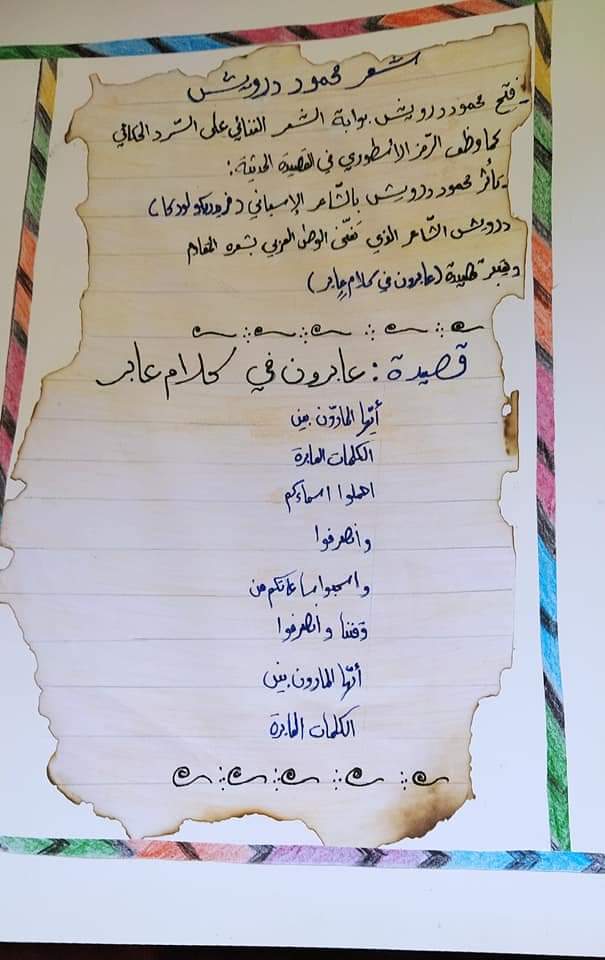 شعر محمود درويش
- فتح محمود درويش بوابة الشعر الغنائي على السّرد الحكائي
كما وظف الرّمز الأسطوري في القصيدة الحديثة :
- تأثر محمود درويش بالشّاعر الإسباني (فريدريكو لوركا)
درويش الشّاعر الذي تغنّى الوطن العربي بشعره المقاوم
وتعتبر قصيدة (عابرون في كلامٍ عابر)
قصيدة : عابرون في كلام عابر
أيّها المارّون بين
الكلمات العابرة
احملوا اسماءكم
وانصرفوا
واسحبوا ساعاتكم من
وقتنا وانصرفوا
أيّها المارون بين
الكلمات العابرة